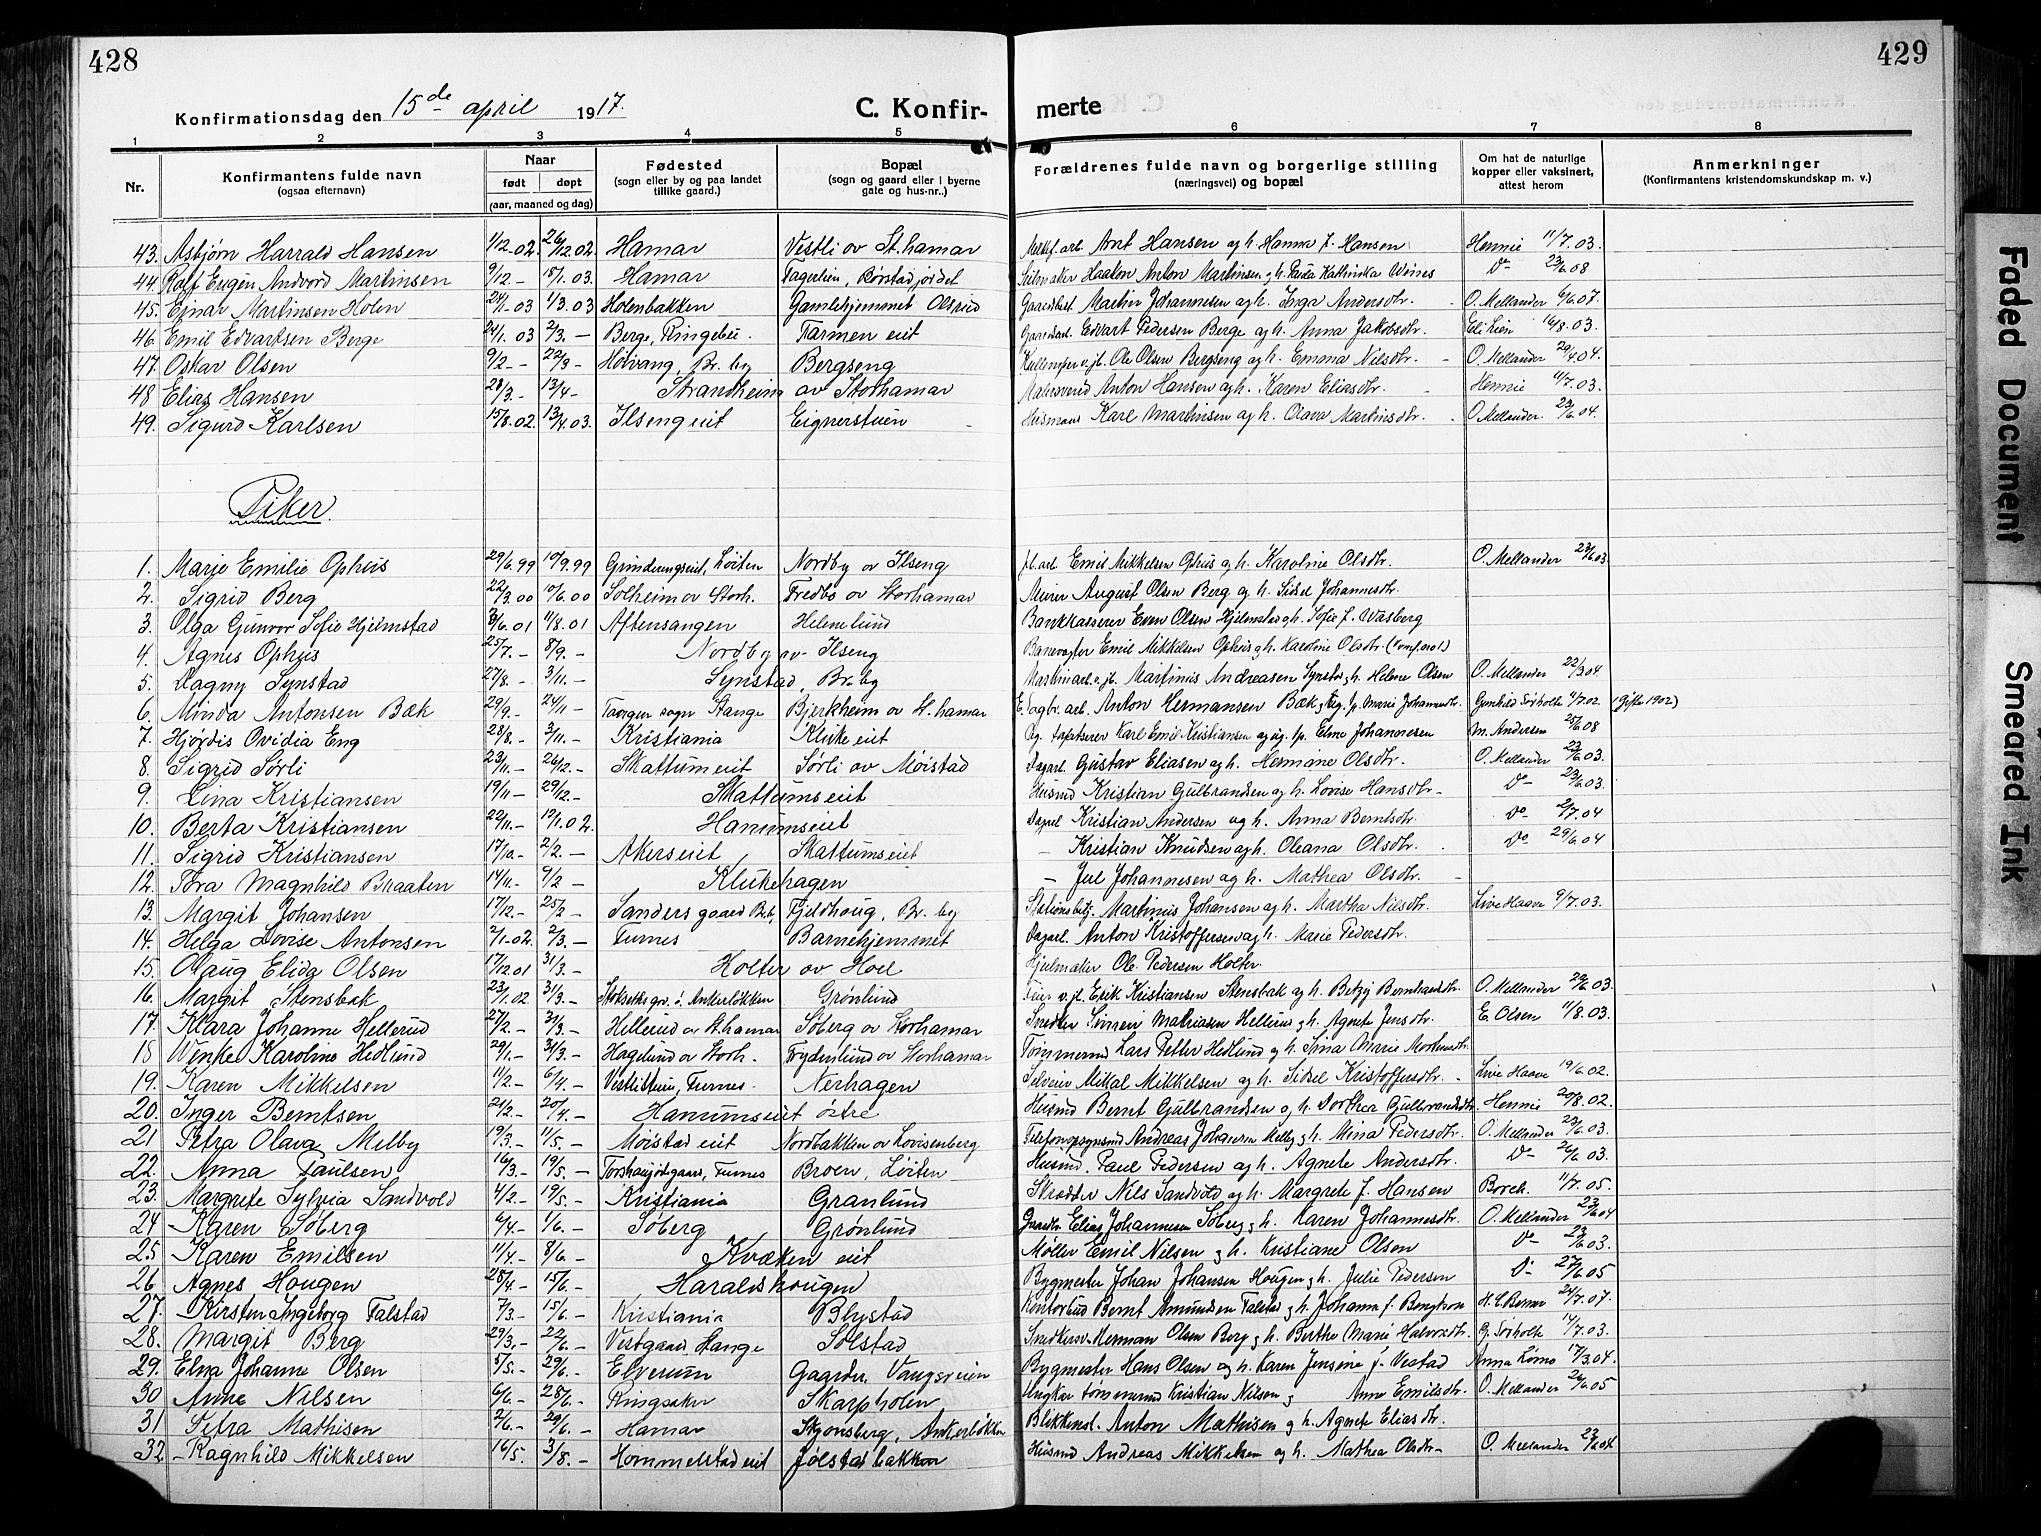 428
429
Konfirmationsdag den 15de april 1917.
C. Konfirmerte
1 2 3 4 5 6 7 8
Nr. Konfirmantens fulde navn (ogsaa efternavn) Naar født døpt (aar, maaned og dag) Fødested (sogn eller by og paa landet tillike gaard.) Bopæl (sogn og gaard eller i byerne gate og hus-nr..) Forældrenes fulde navn og borgerlige stilling (næringsvei) og bopæl Om hat de naturlige kopper eller vaksinert, attest herom Anmerkninger (Konfirmantens kristendomskundskap m. v.)
43. Asbjørn Harrald Hansen 1/12.02. 26/12.02 Hamar Vestli av St.hamar Arnt Hansen og h. Hanna f. Hansen Hennie 11/7.03.
44. Rolf Eugen Andvord Martinsen 9/12.- 18/1.03. Hamar Fagerlien, Børstadjordet Salmaker Haakon Anton Martinsen og h. Paula Kathinka Weines Do 23/6.08
45. Ejnar Martinsen Holen 24/1.03 1/3.03 Holenbakken Gamlehjemmet Olsrud Gaardbest. Martin Johannesen og h. Inga Andersdtr. O. Mellander 6/6.07.
46 Emil Edvartsen Berge 24/1.03 2/3.- Berge, Ringebu. Tarmen eit Gaardsarb. Edvart Pedersen Berge og h. Anna Jakobsdtr. Eli Lien 16/8.03.
47. Oskar Olsen 9/2.- 22/3- Holvang, Br. by Bergseng Ole Olsen Bergseng og h. Emma Nilsdtr. O. Mellander 29/4.04.
48 Elias Hansen 28/3.- 13/4- Strandheim av Storhamar Anton Hansen og h. Karen Eliasdtr. Hennie 11/7.03.
49. Sigurd Karlsen 15/8.02. 13/4.03. Ilseng eit Eignerstuen Husmand Karl Martinsen og h. Olava Martinsdtr. O. Mellander. 23/6.04.
Piker.
1. Marie Emilie Ophus 29/6.99 10/9.99 Grinderengseit, Løiten Nordby av Ilseng jb. arb. Emil Mikkelsen Ophus og h. Karoline Olsdtr. O. Mellander 23/6.03
2. Sigrid Berg 22/3.00 10/6.00 Solheim av Storh. Fredbo av Storhamar Murer August Olsen Berg og h. Sidsel Johannesdtr.
3. Olga Gunvor Sofie Hjelmstad 3/6.01 11/8.01 Aftensangen Helenelund Bankkasserer Even Olsen Hjelmstad og h. Sofie f. Wasberg
4. Agnes Ophus 25/7.- 8/9.- Nordby av Ilseng Banevogter Emil Mikkelsen Ophus og h. Karoline Olsdtr.
5. Dagny Synstad 27/8.- 3/11.- Synstad, Br. by Martinus Andreasen Synstad og h. Helene Olsen O. Mellander 22/3.04
6. Minda Antonsen Bæk 29/9.- 24/11- sogn Stange Bjerkheim av St.hamar Anton Hermansen Bæk og Marie Johannesdtr. Gunhild Sørholte 11/7.02. (Gifte 1902)
7. Hjørdis Ovidia Eng 28/8.- 3/11.- Kristiania Kluke eit Karl Emil Kristiansen og ug. p. Elna Johannesen M. Andersen 25/6.08
8. Sigrid Sørli 23/11.- 26/12.- Skattum eit Sørli av Møistad Dagarb. Gustav Eliasen og h. Hermine Olsdtr. O. Mellander 23/6.03.
9. Lina Kristiansen 19/11- 29/12.- Skattumseit Husmd Kristian Gulbrandsen og h. Lovise Hansdtr. Do 23/6.03.
10. Berta Kristiansen 22/11.- 19/1.02. Hanumseit Dagarb. Kristian Andersen og h. Anna Berntsdtr. Do 2/7.04
11. Sigrid Kristiansen 17/10.- 2/2.- Akerseit Skattumseit - Kristian Knudsen og h. Oleana Olsdtr. Do 29/6.04
12. Tora Magnhild Braaten 14/11.- 9/2- Klukehagen - Jul Johannesen og h. Mathea Olsdtr.
13. Margit Johansen 17/12.- 25/2- Sanders gaard Br.by Fjeldhoug, Br. by Stationsbetj. Martinus Johansen og h. Martha Nilsdtr. Live Haave 9/7.03.
14. Helga Lovise Antonsen 2/1-02. 2/3.- Furnes Barnehjemmet Dagarb. Anton Kristoffersen og h. Marie Pedersdtr.
15. Olaug Elida Olsen 17/12.01 31/3.- Holter av Hoel Hjulmaker Ole Pedersen Holter.
16. Margit Stensbak 23/1.02 31/3.- Ankerløkken Grønlund Erik Kristiansen Stensbak og h. Betzy Bernhardsdtr. O. Mellander 23/6.03.
17. Klara Johanne Hellerud 27/2.- 31/3.- Hellerud av St.hamar Søberg av Storhamar Snedker Simen Mathiasen Hellerud og h. Agnete Jensdtr. E. Olsen 11/8.03.
18 Wenke Karoline Hedlund 29/1.- 31/3- Hagelund av Storh. Frydenlund av Storhamar Tømmermd Lars Petter Hedlund og h. Lina Marie Mortensdtr.
19. Karen Mikkelsen 11/2.- 6/4.- Vestlistuen, Furnes. Nerhagen Selveier Mikal Mikkelsen og h. Sidsel Kristoffersdtr. Live Haave 19/6.02.
20. Inger Berntsen 21/2.- 20/4.- Hanumseit østre Husmd Bernt Gulbrandsen og h. Dorthea Gulbrandsdtr. Hennie 20/8.02.
21 Petra Olava Melby 19/3.- 11/5- Møistad eit Nordbakken av Lovisenberg Andreas Johansen Melby og h. Mina Pedersdtr. O. Mellander 23/6.03.
22. Anna Paulsen 16/3.- 19/5.- Furnes Broen, Løiten Husmd. Paul Pedersen og h. Agnete Andersdtr. Do 26/6.03.
23. Margrete Sylvia Sandvold 4/2.- 19/5.- Kristiania Granlund Skrædder Nils Sandvold og h. Margrete f. Hansen Borch. 11/7.05.
24 Karen Søberg 6/4.- 1/6.- Søberg Grønlund Gaardbr. Elias Johannesen Søberg og h. Karen Johannesdtr. O. Mellander 23/6.04
25 Karen Emilsen 11/4.- 8/6.- Kvæken eit Møller Emil Nilsen og h. Kristiane Olsen Do 23/6.03.
26. Agnes Hougen 28/4.- 15/6.- Haraldshougen Bygmester Johan Johansen Hougen og h. Julie Pedersen Do 27/6.05
27. Kirsten Ingeborg Falstad 7/3.- 15/6.- Kristiania Blystad Kontorbud Bernt Amundsen Falstad og h. Johanna f. Bengtson 24/7.07.
28. Margit Berg 29/3.- 22/6.- Vestgaard Stange Solstad Snedkersv. Herman Olsen Berg og h. Berthe Marie Halvorsdtr. G. Sørholte 14/7.03.
29. Elna Johanne Olsen 5/5.- 29/6.- Elverum Gaarder, Vangsveien Bygmester Hans Olsen og h. Karen Jensine f. Vestad Anna Lomo 17/3.04.
30 Anne Nilsen 6/6.- 28/6.- Ringsaker Skarpholen Ungkar tømmermd Kristian Nilsen og Anne Emilsdtr. O. Mellander 26/6.05
31 Petra Mathisen 2/6.- 29/6.- Hamar Skjonsberg, Ankerløkken Blikkensl. Anton Mathisen og h. Agnete Eliasdtr.
32 Ragnhild Mikkelsen 16/5. 3/8.- Hommelstad eit Jølstadbakken Husmd Andreas Mikkelsen og h. Mathea Olsdtr- O. Mellander 23/6.04
Faded Document
Smeared Ink